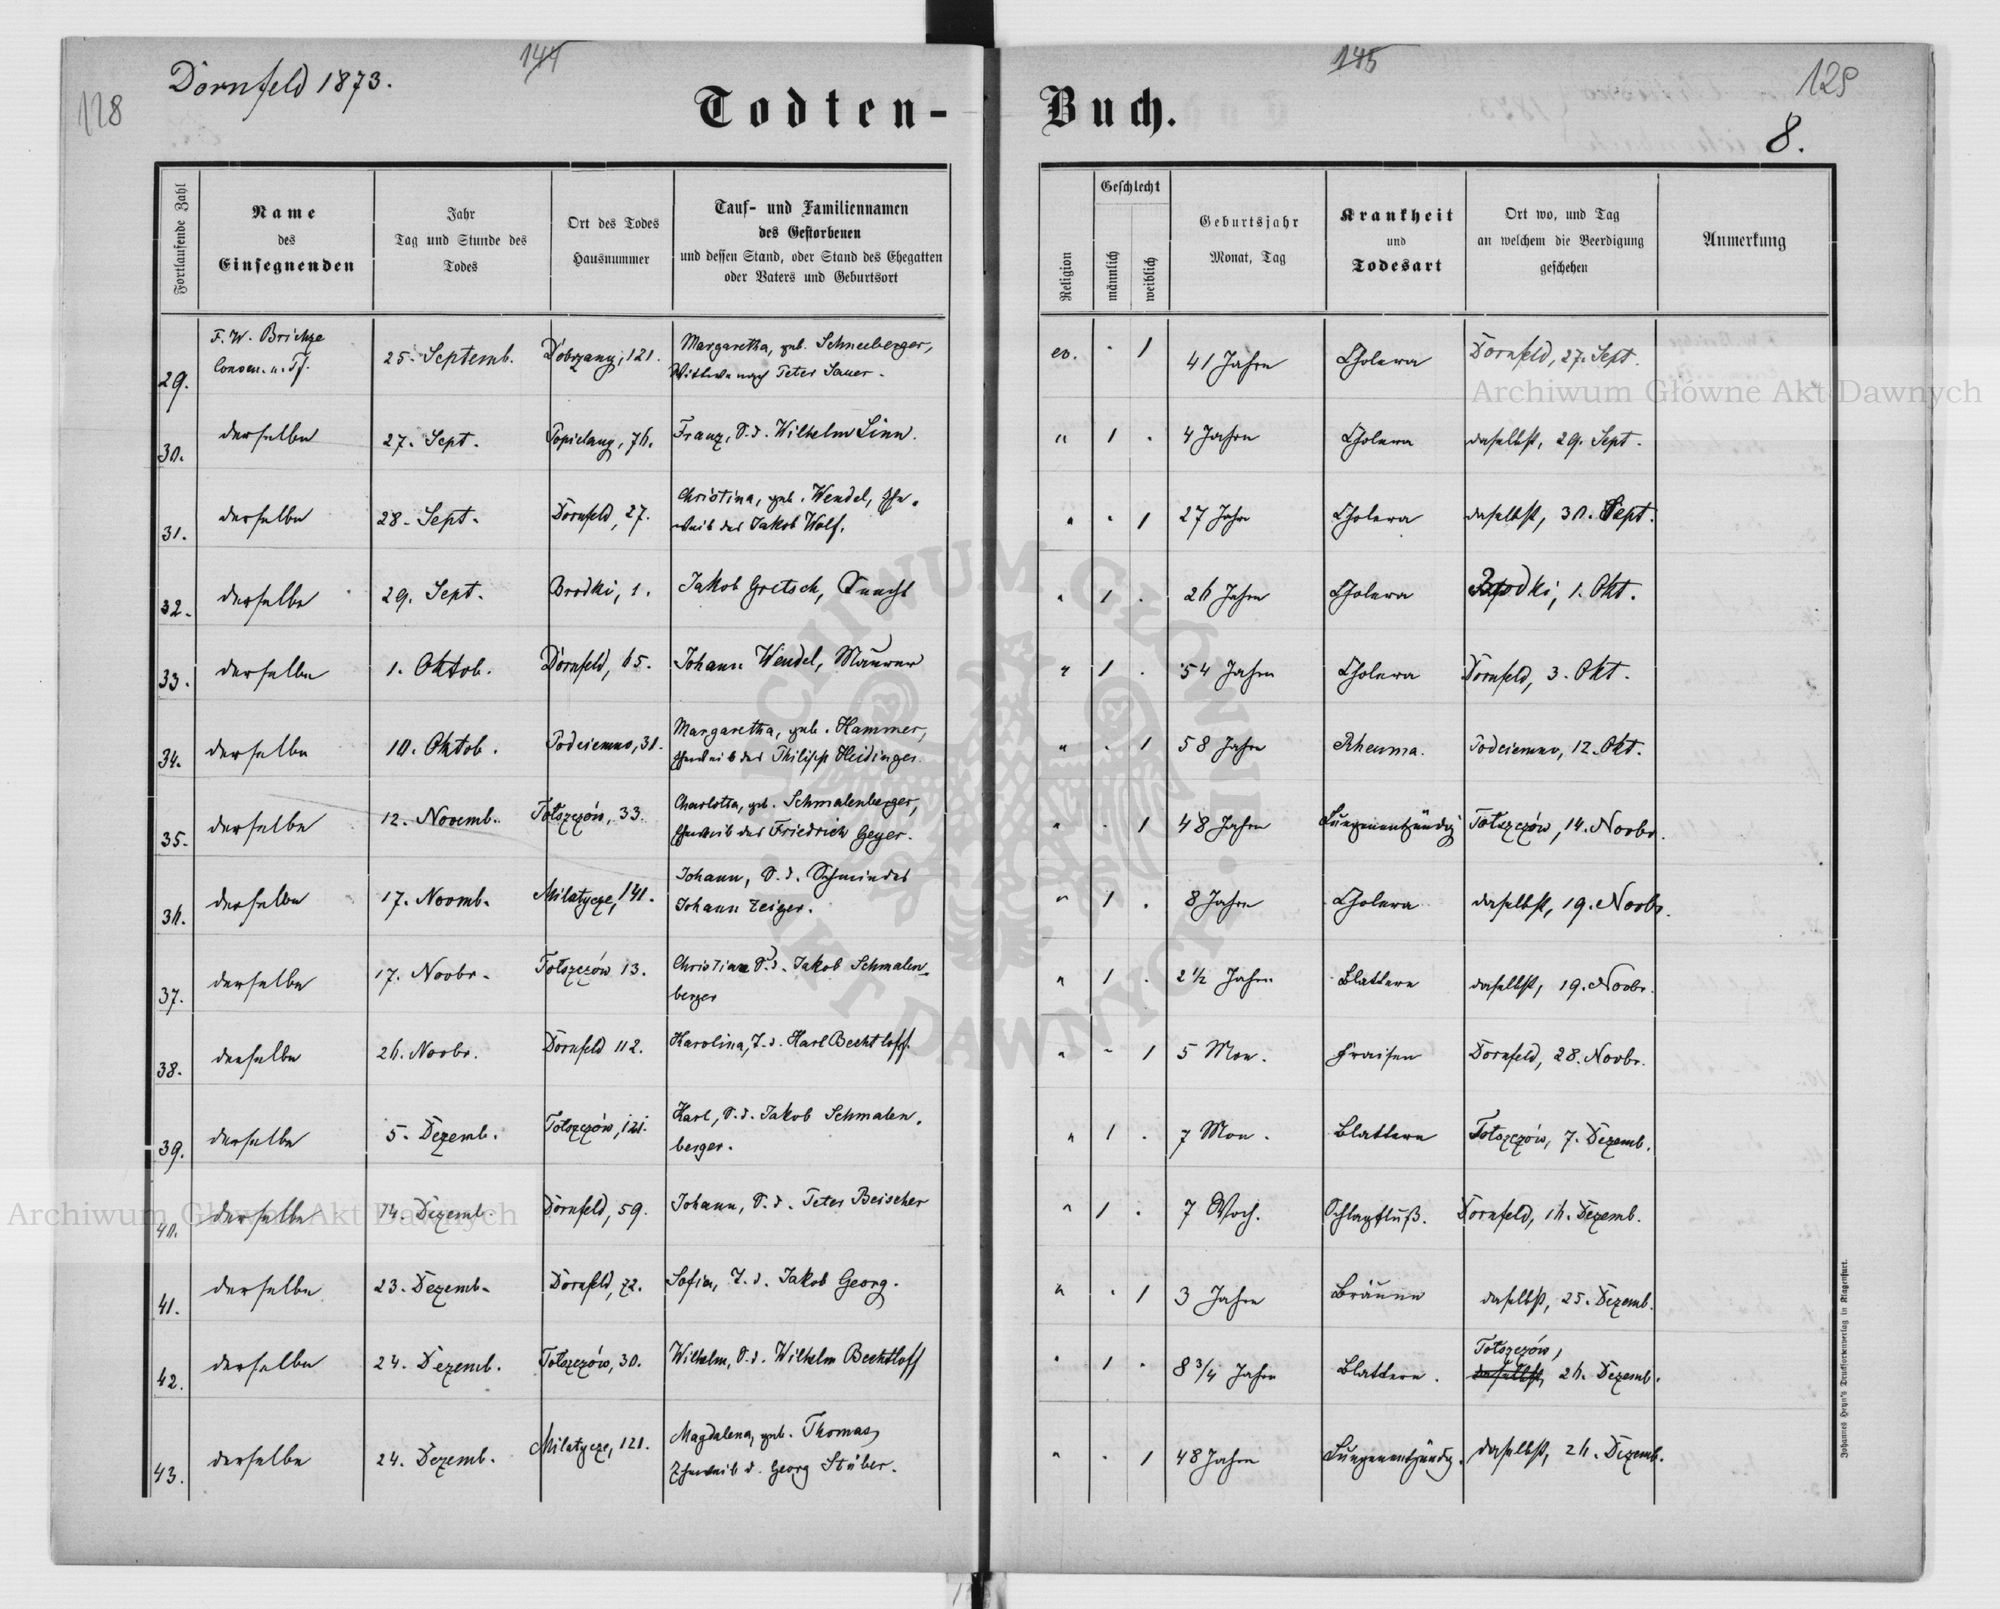 144
145
Dornfeld 1873.
128
129
8.
Todten-
Buch.
Fortlaufende Zahl
Name
des
Einsegnenden
Jahr
Tag und Stunde des
Todes
Ort des Todes
Hausnummer
Tauf- und Familiennamen
des Gestorbenen
und dessen Stand, oder Stand des Ehegatten
oder Vaters und Geburtsort
Religion
Geschlecht
männlich
weiblich
Geburtsjahr
Monat, Tag
Krankheit
und
Todesart
Ort wo, und Tag
an welchem die Beerdigung
geschehen
Anmerkung
29. F. W. 25. Septemb. Dobrzany, 121. Margaretha, geb. Schneeberger, ev. · 1 41 Jahre Cholera Dornfeld, 27. Sept.
Wittwe nach Peter Sauer.
30. derselbe 27. Sept. Popielany, 76. Franz, S. d. Wilhelm Linn. " 1 · 4 Jahre Cholera daselbst, 29. Sept.
31. derselbe 28. Sept. Dornfeld, 27. Christina, geb. Wendel, Ehe-
weib des Jakob Wolf. " · 1 27 Jahre Cholera daselbst, 30. Sept.
32. derselbe 29. Sept. Brodki, 1. Jakob Gretsch, Knecht " 1 · 26 Jahre Cholera Brodki, 1. Okt.
33. derselbe 1. Oktob. Dornfeld, 65. Johann Wendel, Maurer " 1 · 54 Jahre Cholera Dornfeld, 3. Okt.
34. derselbe 10. Oktob. Podciemno, 31. Margaretha, geb. Hammer,
Eheweib des Philipp Heidinger. " · 1 58 Jahre Rheuma. Podciemno, 12. Okt.
35. derselbe 12. Novemb. Tołszczów, 33. Charlotta, geb. Schmalenberger,
Eheweib des Friedrich Geyer. " · 1 48 Jahre Lungenentzündg Tołszczów, 14. Novbr.
36. derselbe 17. Novmb. Milatycze, 141. Johann, S. d. Schmiedes
Johann Zeiger. " 1 · 8 Jahre Cholera daselbst, 19. Novbr.
37. derselbe 17. Novbr. Tołszczów, 13. Christian S. d. Jakob Schmalen-
berger " 1 · 2 1/2 Jahre Blattern daselbst, 19. Novbr.
38. derselbe 26. Novbr. Dornfeld 112. Karolina, T. d. Karl Bechtloff. " - 1 5 Mon. Fraisen Dornfeld, 28. Novbr.
39. derselbe 5. Dezemb. Tołszczów, 121. Karl, S. d. Jakob Schmalen-
berger. " 1 · 7 Mon. Blattern Tołszczów, 7. Dezemb.
40. derselbe 14. Dezemb. Dornfeld, 59. Johann, S. d. Peter Beischer " 1 · 7 Woch. Schlagfluß. Dornfeld, 16. Dezemb.
41. derselbe 23. Dezemb. Dornfeld, 72. Sofia, T. d. Jakob Georg. " · 1 3 Jahre Bräune daselbst, 25. Dezemb.
42. derselbe 24. Dezemb. Tołszczów, 30. Wilhelm, S. d. Wilhelm Bechtloff " 1 · 8 3/4 Jahre Blattern. Tołszczów,
daselbst, 26. Dezemb.
43. derselbe 24. Dezemb. Milatycze, 121. Magdalena, geb. Thomas,
Eheweib d. Georg Stüber. " · 1 48 Jahre Lungenentzündg. daselbst, 26. Dezemb.
Johannes Heyn's Drucksortenverlag in Klagenfurt.
Archiwum Główne Akt Dawnych
Archiwum Główne Akt Dawnych
ARCHIWUM GŁÓWNE AKT DAWNYCH